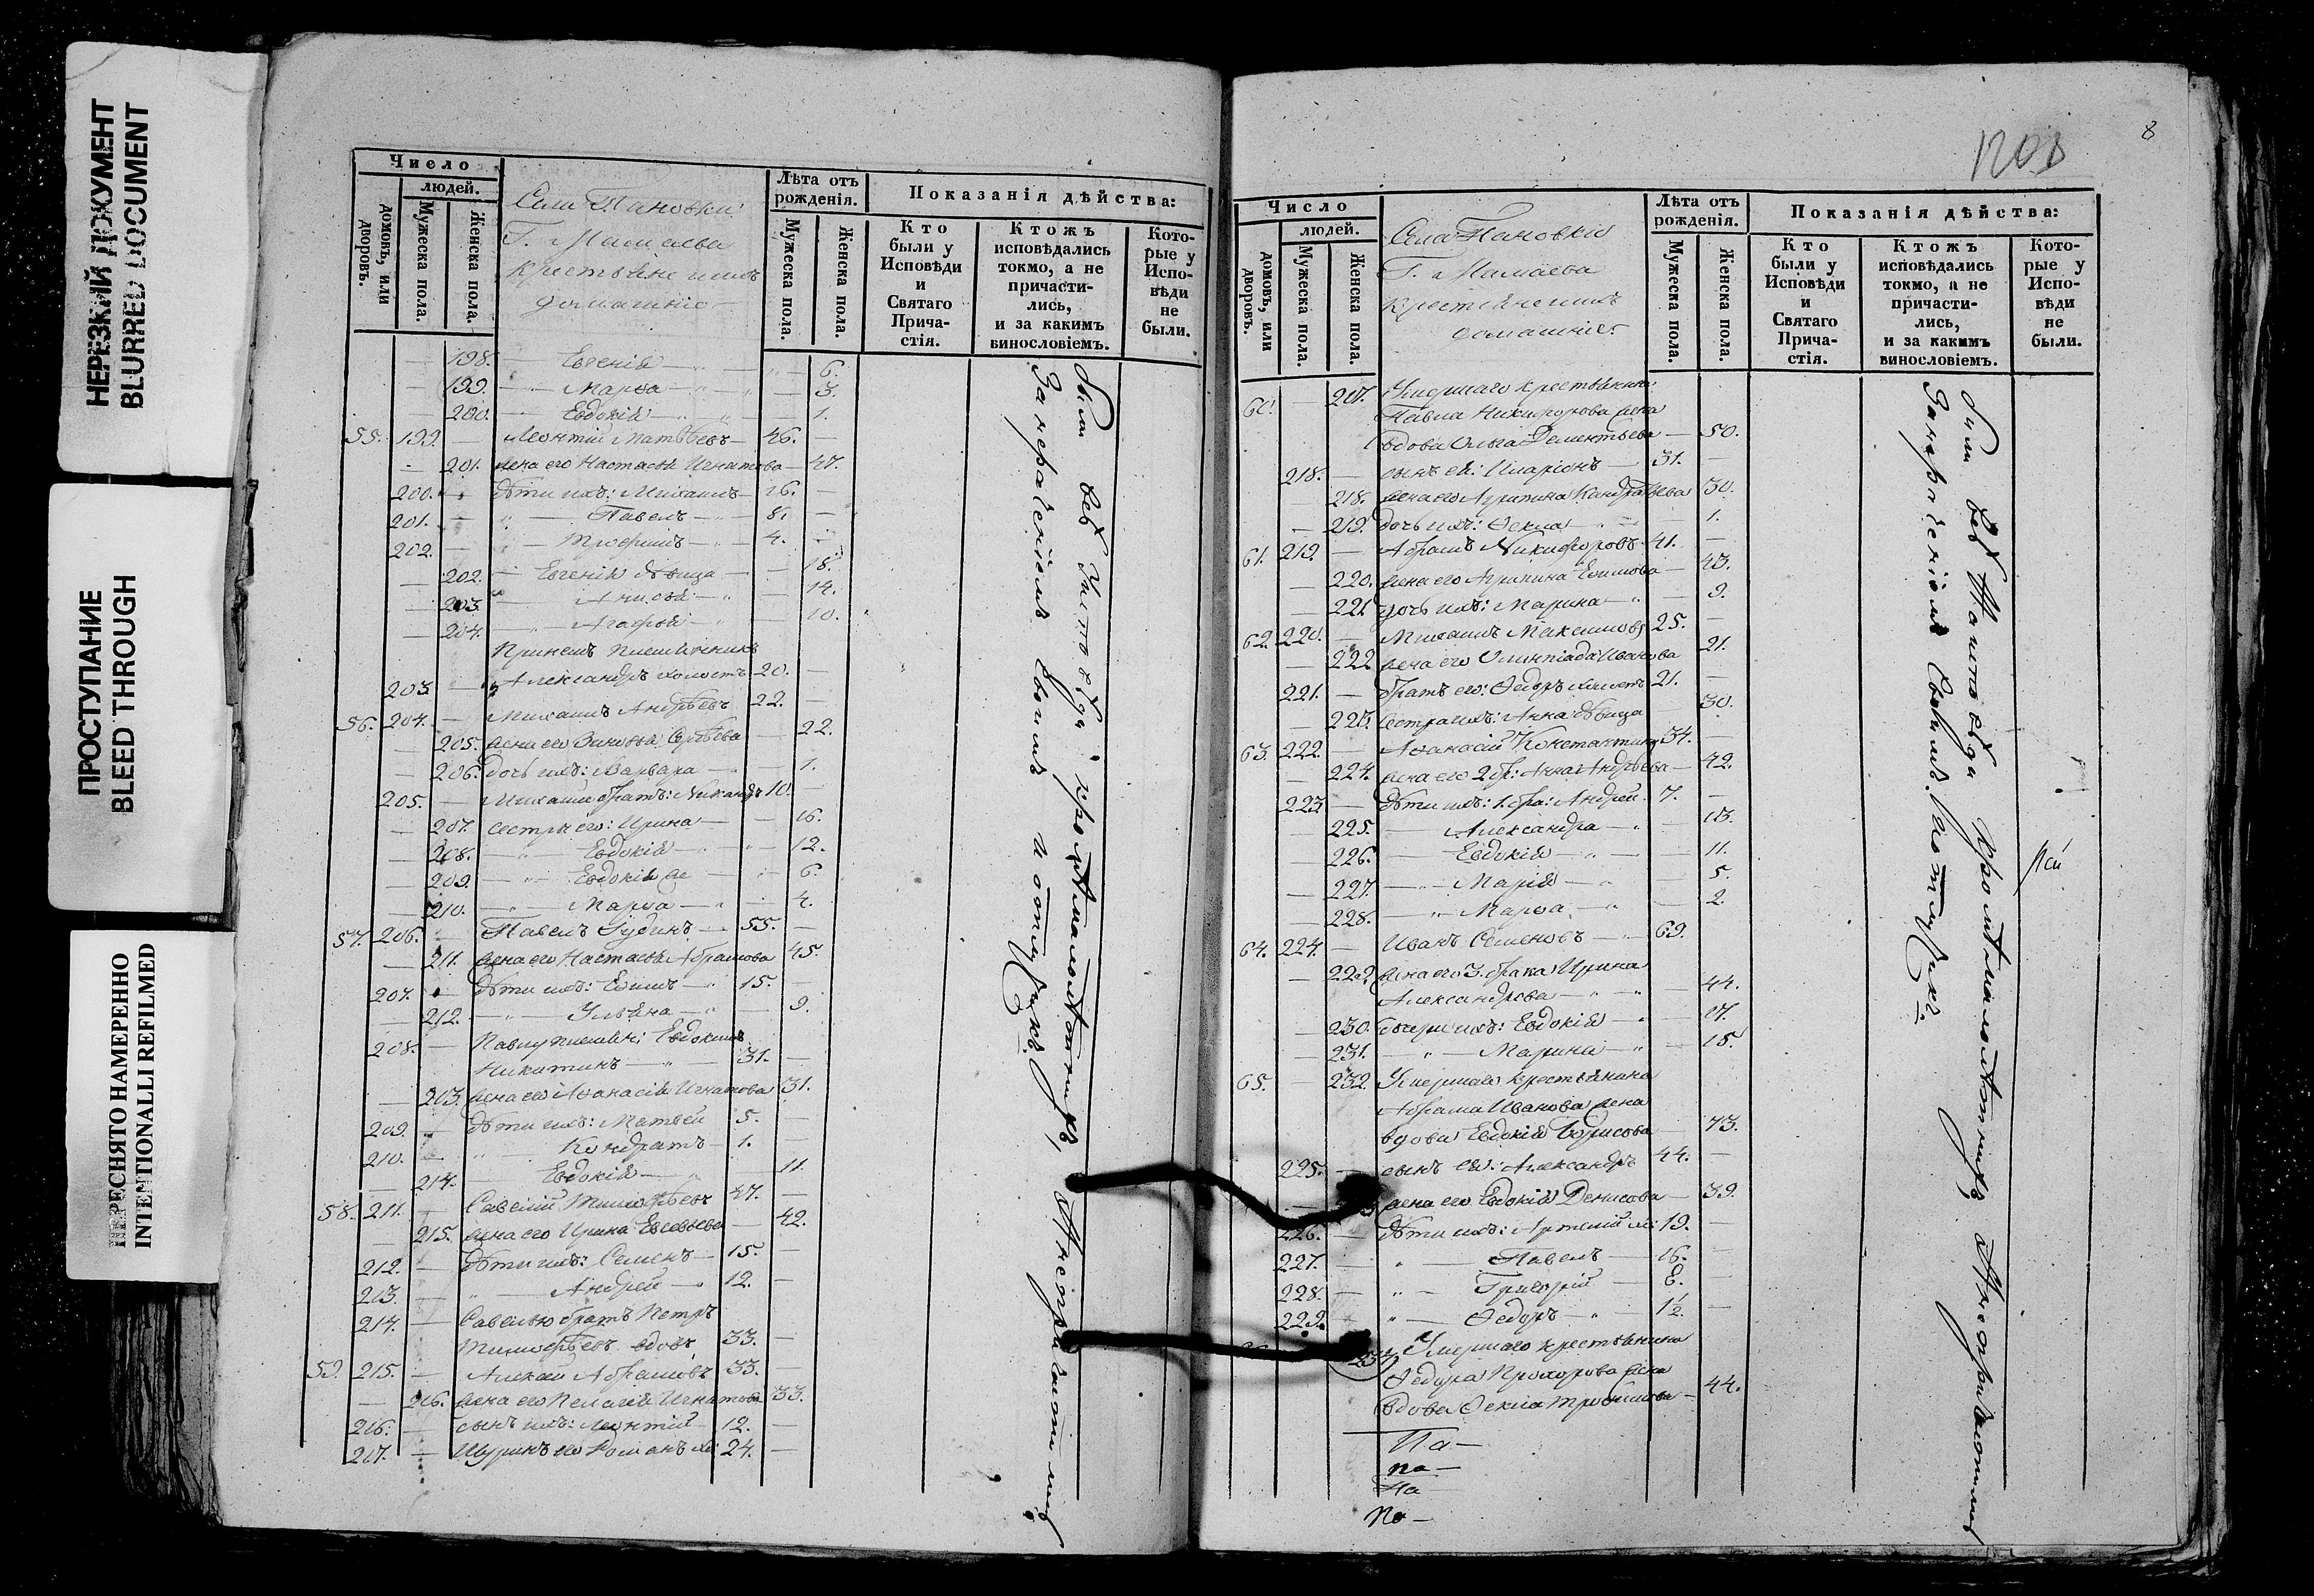 НЕРЕЗКИЙ ДОКУМЕНТ
BLURRED DOCUMENT
ПРОСТУПАНИЕ
BLEED THROUGH
ПЕРЕСНЯТО НАМЕРЕННО
INTENTIONALLI REFILMED
Число
людей.
домовъ, или дворовъ.
Мужеска пола.
Женска пола.
Села Пановки
Г. Мамаева
крестьяне и ихъ
домашніе
Лѣта отъ рожденія.
Мужеска пола.
Женска пола.
Показанія дѣйства:
Кто были у Исповѣди и Святаго Прича-стія.
Ктожъ исповѣдались токмо, а не причасти-лись, и за какимъ винословіемъ.
Кото-рые у Испо-вѣди не были.
198. Евгенія 6.
199. Марѳа 3.
200. Евдокія 1.
55. 199. Леонтій Матвѣевъ 46.
201. жена его Настасья Игнатова 47.
200. дѣти ихъ: Михаилъ 16.
201. Павелъ 8.
202. Трофимъ 4.
202. Евгенія дѣвица 18.
203. Анисья 14.
204. Агафья 10.
Принятъ племянникъ
203. Александръ холостъ 20.
56. 204. Михаилъ Андрѣевъ 22.
205. жена его Зиновья Сергѣева 22.
206. дочь ихъ: Варвара 1.
205. Михаилѣ братъ: Никандръ 10.
207. сестры его: Ирина 16.
208. Евдокія 12.
209. Евдокія же 6.
210. Марѳа 4.
57. 206. Павелъ Іудинъ 55.
211. жена его Настасья Абрамова 45.
207. дѣти ихъ: Ефимъ 15.
212. Ульяна 9.
208. Павлу племян: Евдокимъ
Никитинъ 31.
203. жена его Афанасія Игнатова 31.
209. дѣти ихъ: Матвей 5.
210. Кондратъ 1.
214. Евдокія 11.
58. 211. Савелій Тимофѣевъ 47.
215. жена его Ирина Евсевьева 42.
212. дѣти ихъ: Семенъ 15.
213. Андрей 12.
214. Савелью братъ Петръ
Тимофѣевъ вдовъ 33.
59. 215. Алексѣй Абрамовъ 33.
216. жена его Пелагея Игнатова 33.
216. сынъ ихъ: Леонтій 12.
217. Шуринъ его Романъ хо: 24.
Сіи всѣ у исповѣди кромѣ малолѣтнихъ, А не причастились
За нерадѣніемъ своимъ и отлучкѣ.
8
Число
людей.
домовъ, или дворовъ.
Мужеска пола.
Женска пола.
Села Пановки
Г. Мамаева
крестьяне и ихъ
домашніе
Лѣта отъ рожденія.
Мужеска пола.
Женска пола.
Показанія дѣйства:
Кто были у Исповѣди и Святаго Прича-стія.
Ктожъ исповѣдались токмо, а не причасти-лись, и за какимъ винословіемъ.
Кото-рые у Испо-вѣди не были.
60. 217. Умершаго крестьянина
Павла Никифорова жена
вдова Ольга Дементьева 50.
218. сынъ ея: Иларіонъ 31.
218. жена его Агрипина Кандратьева 30.
219. дочь ихъ: Ѳекла 1.
61. 219. Абрамъ Никифоровъ 41.
220. жена его Агрипина Ефимова 43.
221. дочь ихъ: Марина 9.
62. 220. Михаилъ Максимовъ 25.
222. жена его Олимпіада Иванова 21.
221. братъ его: Ѳедоръ холостъ 21.
223. сестра ихъ: Анна дѣвица 30.
63. 222. Афанасій Константиновъ 34.
224. жена его 2 бр: Анна Андрѣева 42.
223. дѣти ихъ: 1. бра: Андрей 7.
225. Александра 13.
226. Евдокія 11.
227. Марія 5.
228. Марѳа 2.
64. 224. Иванъ Семеновъ 69.
229. жена его 3. брака Ирина
Александрова 44.
230. дочери ихъ: Евдокія 17.
231. Марина 15.
65. 232. Умершаго крестьянина
Абрама Иванова жена
вдова Евдокія Борисова 73.
225. сынъ ея: Александръ 44.
жена его Евдокія Денисова 39.
226. дѣти ихъ: Артемій хо: 19.
227. Павелъ 16.
228. Григорій 8.
229. Ѳедоръ 1/2.
Умершаго крестьянина
Ѳедора Прохорова жена
вдова Ѳекла Трофимова 44.
Сіи всѣ у исповѣди кромѣ малолѣтнихъ, А не причастились
За нерадѣніемъ своимъ и отлучкѣ.